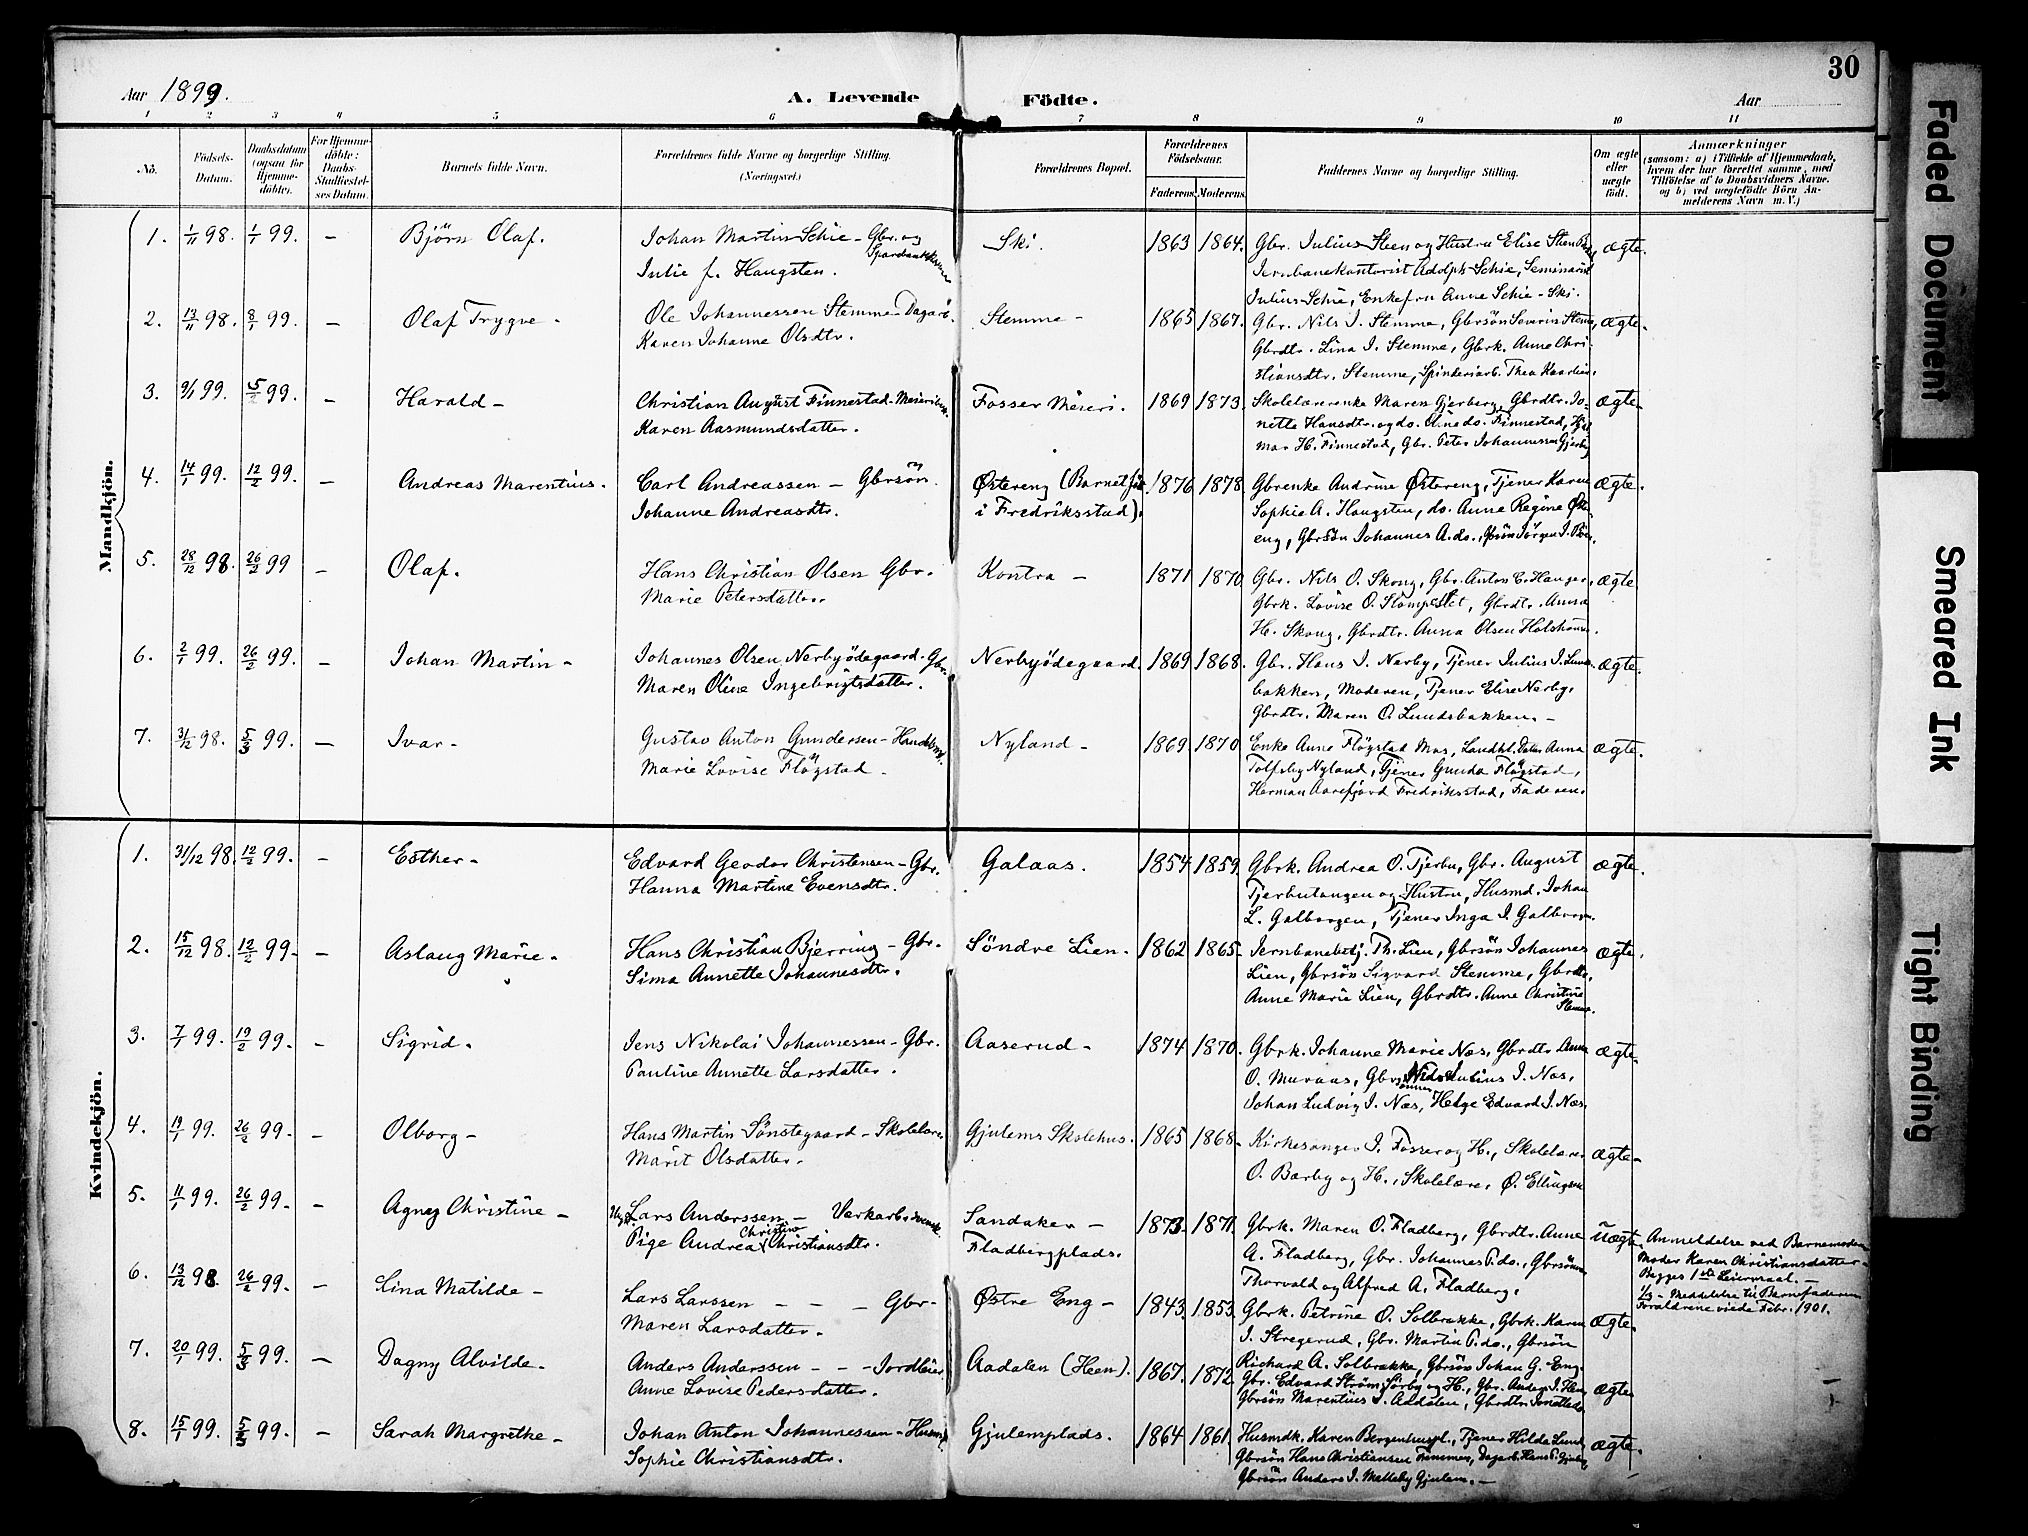 30
Aar 1899.
A. Levende Födte.
Aar
1 2 3 4 5 6 7 8 9 10 11
No.
Födsels-Datum.
Daabsdatum (ogsaa for Hjemme-döbte).
For Hjemme-döbte: Daabs-Stadfæstel-ses Datum.
Barnets fulde Navn.
Forældrenes fulde Navne og borgerlige Stilling. (Næringsvei.)
Forældrenes Bopæl.
Forældrenes Födselsaar.
Faderens. Moderens.
Faddernes Navne og borgerlige Stilling.
Om ægte eller uægte födt.
Anmærkninger
(saasom: a) i Tilfælde af Hjemmedaab, hvem der har forrettet samme, med Tilföielse af to Daabsvidners Navne, og b) ved uægtefödte Börn An-melderens Navn m. V.)
Mandkjön.
1. 1/11 98. 1/1 99. – Björn Olaf. Johan Martin Schie – Gbr. og
Julie f. Haugsten. Ski. 1863 1864. Gbr. Julius Steen og Hustru Elise Steen
Jernbanekontorist Adolph Schie, Seminarist
Julius Schie, Enkefru Anne Schie – Ski.
ægte.
2. 13/11 98. 8/1 99. – Olaf Trygve – Ole Johannessen Stemme – Dagarb.
Karen Johanne Olsdtr. Stemme – 1865 1867. Gbr. Nils J. Stemme, Gbrsön Severin Stemme,
Gbrdtr. Lina J. Stemme, Gbrk. Anne Chri-
stiansdtr. Stemme, Spinderiarb. Thea
ægte.
3. 9/1 99. 5/2 99. – Harald – Christian August Finnestad – Meieribest.
Karen Aasmundsdatter. Fosser Meieri. 1869 1873. Skolelærerenke Maren Gjerberg, Gbrdtr. Jo-
nette Hansdtr. og do. Oline do. Finnestad, Hjal
mar H. Finnestad, Gbr. Peter Johannesen Gjerberg
ægte.
4. 14/1 99. 12/2 99. – Andreas Marentius. Carl Andreassen – Gbrsön.
Johanne Andreasdtr. Østereng (Barnet föd
i Fredriksstad). 1876 1878 Gbrenke Andrine Østereng, Tjener Karen
Sophie A. Haugsten, do. Anne Regine Øster
eng, Gbrsön Johannes A. do., Gbrsön Jörgen J.
ægte.
5. 28/12 98. 26/2 99 – Olaf. Hans Christian Olsen Gbr.
Marie Petersdatter. Kontra – 1871 1870 Gbr. Nils O. Skong, Gbr. Anton E. Hauger,
Gbrk. Lovise O. Slompeslet, Gbrdtr. Anna
H. Skong, Gbrdtr. Anna Olsen
ægte
6. 2/1 99. 26/2 99. – Johan Martin – Johannes Olsen Nerbyödegaard – Gbr.
Maren Oline Ingebrigtsdatter. Nerbyödegaard. 1869 1868. Gbr. Hans J. Nerby, Tjener Julius J. Lunds-
bakken, Moderen, Tjener Elise Nerby,
Gbrdtr. Maren O. Lundsbakken. –
ægte.
7. 31/12 98. 5/3 99. – Ivar – Gustav Anton Gundersen – Handelsm.
Marie Lovise Flögstad. Nyland – 1869 1870 Enke Anne Flögstad Mos, Anna
Tolfsby Nyland, Tjener Gunda Flögstad,
Herman Aarefjord Fredriksstad, Faderen.
ægte.
Kvindekjön.
1. 31/12 98. 12/2 99. – Esther – Edvard Geodor Christensen – Gbr.
Hanna Martine Evensdtr. Galaas. 1854 1859. Gbrk. Andrea O. Tjerbu, Gbr. August
Tjerbutangen og Hustru, Husmd. Johan
L. Galborgen, Tjener Inga J. Galborgen.
ægte.
2. 15/12 98. 12/2 99. – Aslaug Marie. Hans Christian Bjerring – Gbr.
Sima Annette Johannesdtr. Söndre Lien. 1862 1865. Jernbanebetj. Th. Lien, Gbrsön Johannes
Lien, Gbrsön Sigvard Stemme, Gbrdtr.
Anne Marie Lien, Gbrdtr. Anne Christine
Stemme.
ægte.
3. 7/1 99. 19/2 99. – Sigrid. Jens Nikolai Johannessen – Gbr.
Pauline Annette Larsdatter. Aaserud – 1874 1870. Gbrk. Johanne Marie Næs, Gbrdtr. Anna
O. Muraas, Gbrsönner Nils Julius J. Næs,
Johan Ludvig J. Næs, Helge Edvard J. Næs.
ægte.
4. 19/1 99. 26/2 99. – Olborg – Hans Martin Sönstegaard – Skolelærer
Marit Olsdatter. Gjulems Skolehus. 1865 1868. Kirkesanger J. Fosser og H., Skolelærer
O. Barby og H., Skolelærer Ø. Ellingsen
ægte.
5. 11/1 99. 26/2 99. – Agnes Christine – Ugift Lars Anderssen – Værkarb. svensk.
Pige Andrea Christine Christiansdtr. Sandaker –
Fladbergplads. 1873. 1871. Gbrk. Maren O. Fladberg, Gbrdtr. Anne
A. Fladberg, Gbr. Johannes P. do., Gbrsönner
Thorvald og Alfred A. Fladberg.
uægte. Anmeldelse ved Barnemoderens
Moder Karen Christiansdatter –
Begges 1ste Leiermaal. –
Meddelelse til Barnefaderen
Forældrene viede Febr. 1901.
6. 13/12 98 26/2 99. – Lina Matilde – Lars Larssen – – – Gbr.
Maren Larsdatter. Østre Eng – 1843. 1853. Gbrk. Petrine O. Solbrække, Gbrk. Karen
J. Stregerud, Gbr. Martin P. do., Gbrsön
Richard A. Solbrække, Gbrsön Johan G. Eng.
ægte.
7. 20/1 99. 5/3 99. – Dagny Alvilde. Anders Anderssen – – – Jordleier
Anne Lovise Pedersdatter. Aadalen (Heen). 1867. 1872. Gbr. Edvard Ström, Sörby og H., Gbr. Anders J. Heen
Gbrsön Marentius J. Aadalen, Gbrdtr. Jonette do
ægte
8. 15/1 99. 5/3 99. – Sarah Margrethe – Johan Anton Johannessen – Husmd.
Sophie Christiansdtr. Gjulemplads. 1864 1861. Husmdk. Karen Bergenhuspl., Tjener Hilda Lund
Gbrsön Hans Christiansen Temmen, Dagarb. Hans P. Gjulem,
Gbrsön Anders J. Melleby Gjulem. –
ægte.
Faded Document
Smeared Ink
Tight Binding